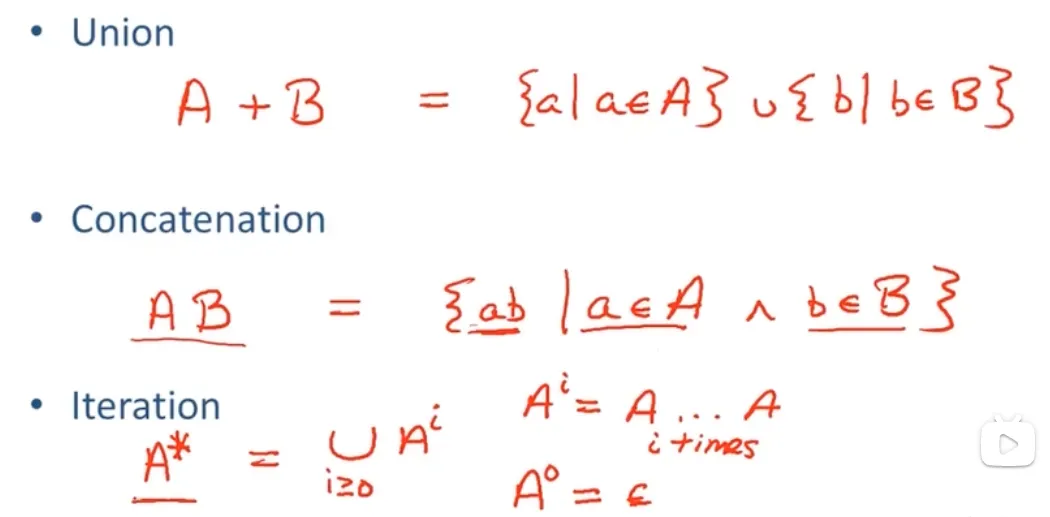 • Union
A + B = {a | a ∈ A} ∪ { b | b ∈ B}
• Concatenation
A B = {ab | a ∈ A ∧ b ∈ B}
• Iteration
A* = ∪ Aⁱ
i≥0
Aⁱ = A ... A
i times
A⁰ = ε